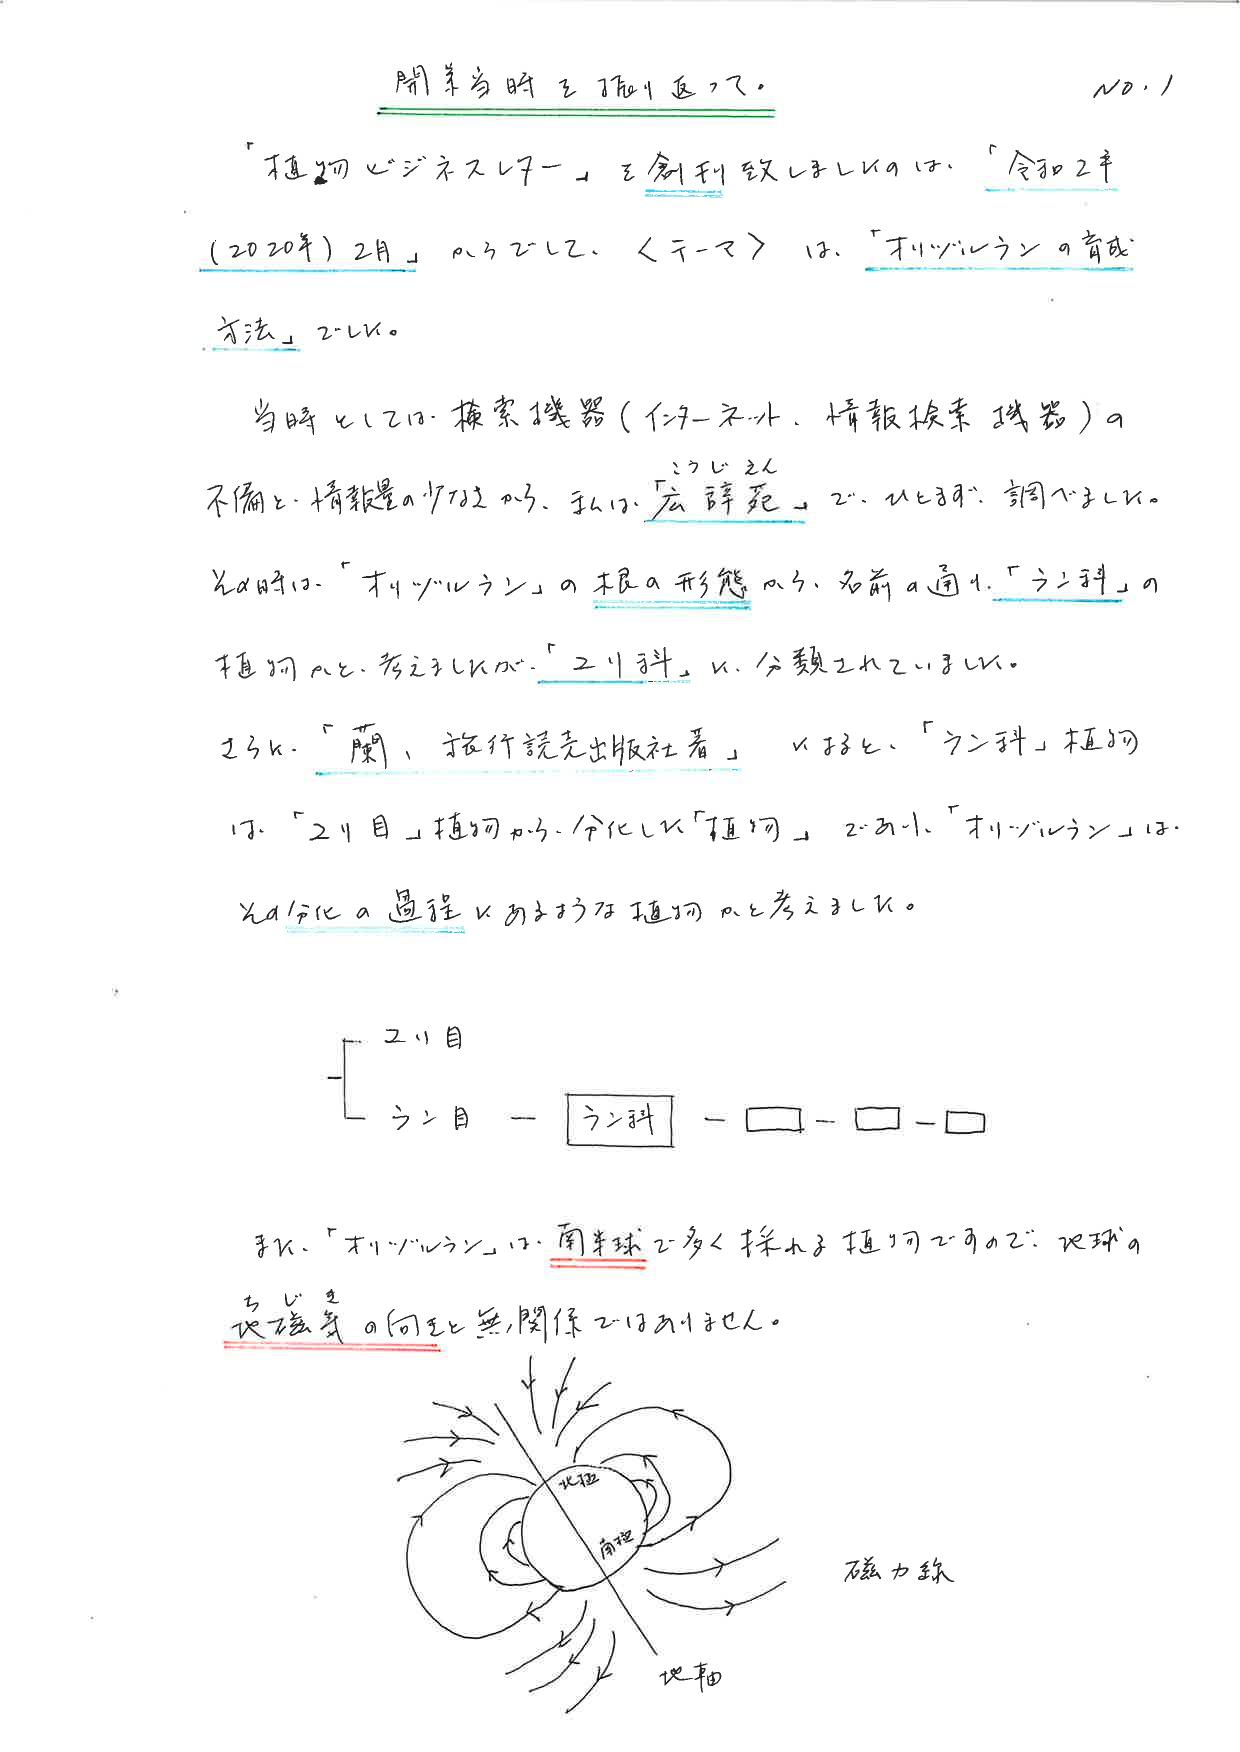 開業当時を振り返って。
NO.1
「植物ビジネスレター」を創刊致しましたのは、「令和2年
(2020年)2月」からでして、〈テーマ〉は、「オリヅルランの育成
方法」でした。
当時としては、検索機器(インターネット、情報検索機器)の
こうじえん
不備と、情報量の少なさから、まずは、「広辞苑」で、ひとまず、調べました。
その時は、「オリヅルラン」の根の形態から、名前の通り、「ラン科」の
植物かと、考えましたが、「ユリ科」に、分類されていました。
さらに、「蘭、旅行読売出版社著」によると、「ラン科」植物
は、「ユリ目」植物から、分化した「植物」であり、「オリヅルラン」は、
その分化の過程にあるような植物かと考えました。
ユリ目
ラン目 ー ラン科 ー ー ー
また、「オリヅルラン」は、南半球で多く採れる植物ですので、地球の
ちじき
地磁気の向きと無関係ではありません。
北極
南極
磁力線
地軸